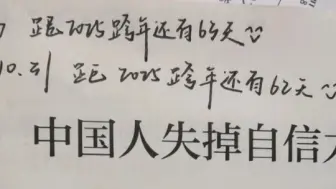 距离2025跨年还有63天
10.31 距离2025跨年还有62天
中国人失掉自信